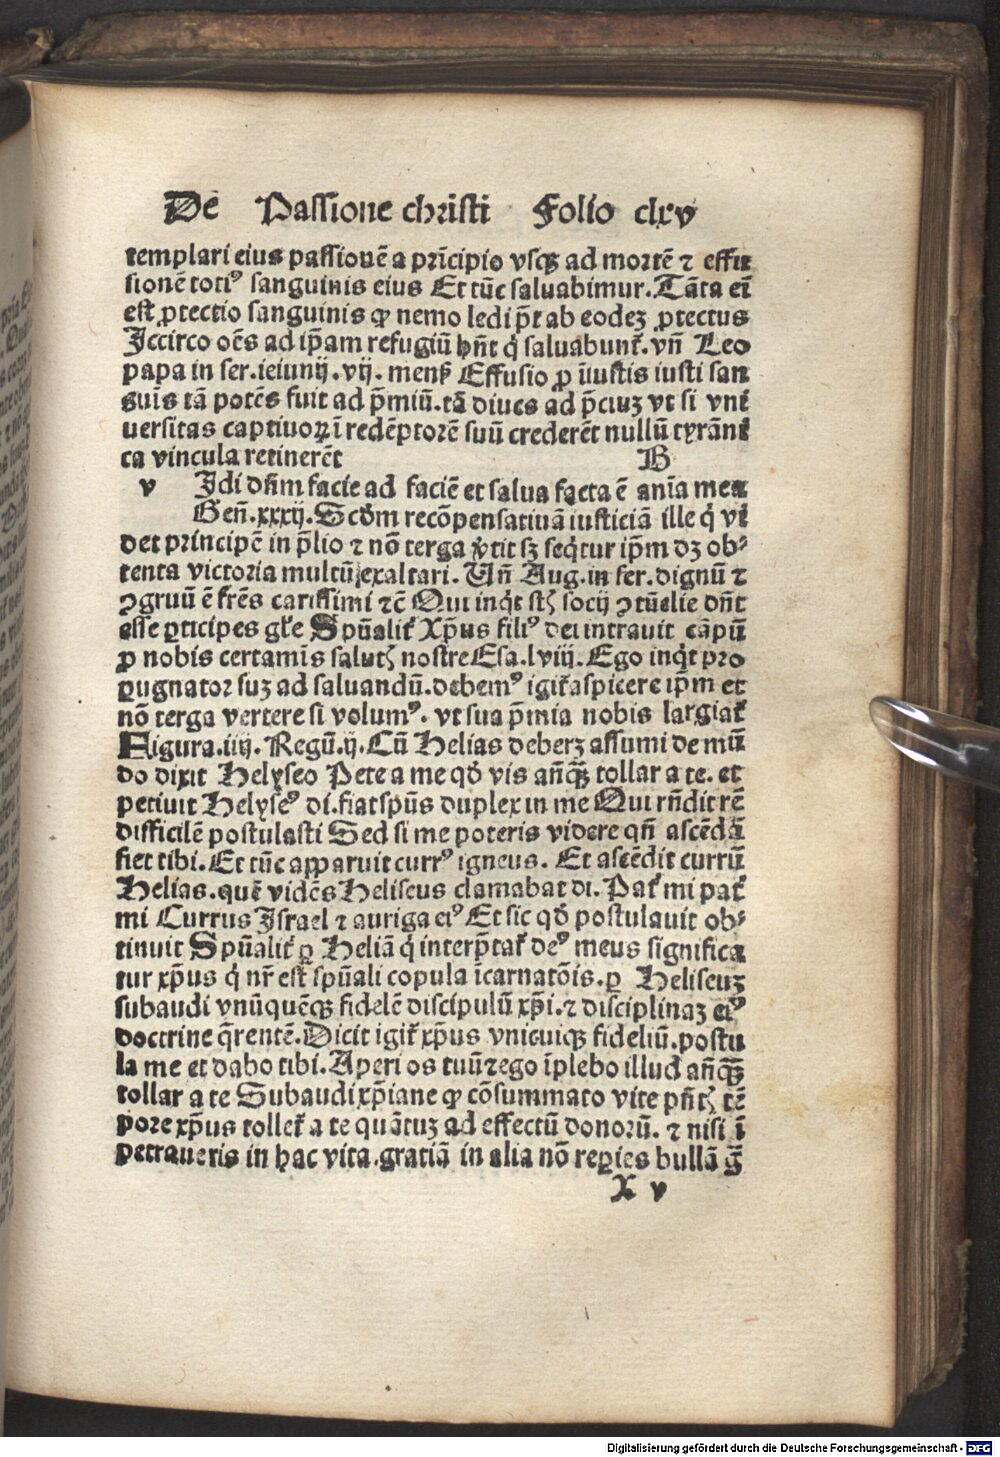 De Passione christi Folio clxv
templari eius passionē a prīcipio vsqꝫ ad mortē ⁊ effu
sionē totiꝰ sanguinis eius Et tūc saluabimur. Tāta eī
est ꝓtectio sanguinis ꝙ nemo ledi p̄t ab eodeꝫ ꝓtectus
Iccirco oēs ad ip̄am refugiū hn̄t q̇ saluabunt᷑. vn̄ Leo
papa in ser. ieiunij. vij. mens̄ Effusio ꝓ iīustis iusti san
guīs tā potēs fuit ad p̄miū. tā diues ad p̄ciuꝫ vt si vni
uersitas captiuoꝝ ī redēptorē suū crederēt nullū tyrāni
ca vincula retinerēt B
v Idi dn̄m facie ad faciē et salua facta ē anīa mea
Gen̄. xxxij. Scd̄m recōpensatiuā iusticiā ille q̇ vi
det principē in p̄lio ⁊ nō terga v̓tit sꝫ seq̇tur ip̄m dꝫ ob⸗
tenta victoria multū exaltari. Vn̄ Aug. in ser. dignū ⁊
ꝯgruū ē frēs carissimi ⁊c̄ Qui inq̇t st̄ꝭ socij ꝯtūelie dn̄t
esse ꝑticipes gl̓e Spūalit᷑ Xp̄us filiꝰ dei intrauit cāpū
ꝓ nobis certamīs salutꝭ nostre Esa. lviij. Ego inq̇t pro
pugnator suꝫ ad saluandū. debemꝰ igit᷑ aspicere ip̄m et
nō terga vertere si volumꝰ. vt sua p̄mia nobis largiat᷑
Figura. iiij. Regū. ij. Cū Helias deberꝫ assumi de mū
do dixit Helyseo Pete a me qd̄ vis an̄qꝫ̄ tollar a te. et
petiuit Helyseꝰ di. fiat spūs duplex in me Qui rn̄dit rē
difficilē postulasti Sed si me poteris videre qn̄ ascēdā
fiet tibi. Et tūc apparuit currꝰ igneus. Et ascēdit currū
Helias. quē vidēs Heliseus clamabat di. Pat᷑ mi pat᷑
mi Currus Israel ⁊ auriga eiꝰ Et sic qd̄ postulauit ob⸗
tinuit Spūalit᷑ ꝑ Heliā q̇ interp̄tat᷑ deꝰ meus significa
tur xp̄us q̇ nr̄ est spūali copula īcarnatōis. ꝑ Heliseuꝫ
subaudi vnūquēqꝫ fidelē discipulū xp̄i. ⁊ disciplinaꝫ eiꝰ
doctrine q̄rentē. Dicit igit᷑ xp̄us vnicuiqꝫ fideliū. postu
la me et dabo tibi. Aperi os tuū ⁊ ego īplebo illud an̄qꝫ̄
tollar a te Subaudi xp̄iane ꝙ cōsummato vite pn̄tꝭ tē
pore xp̄us tollet᷑ a te quātuꝫ ad effectū donorū. ⁊ nisi ī
petraueris in hac vita. gratiā in alia nō reꝑies bullā ḡ
X v
Digitalisierung gefördert durch die Deutsche Forschungsgemeinschaft - DFG